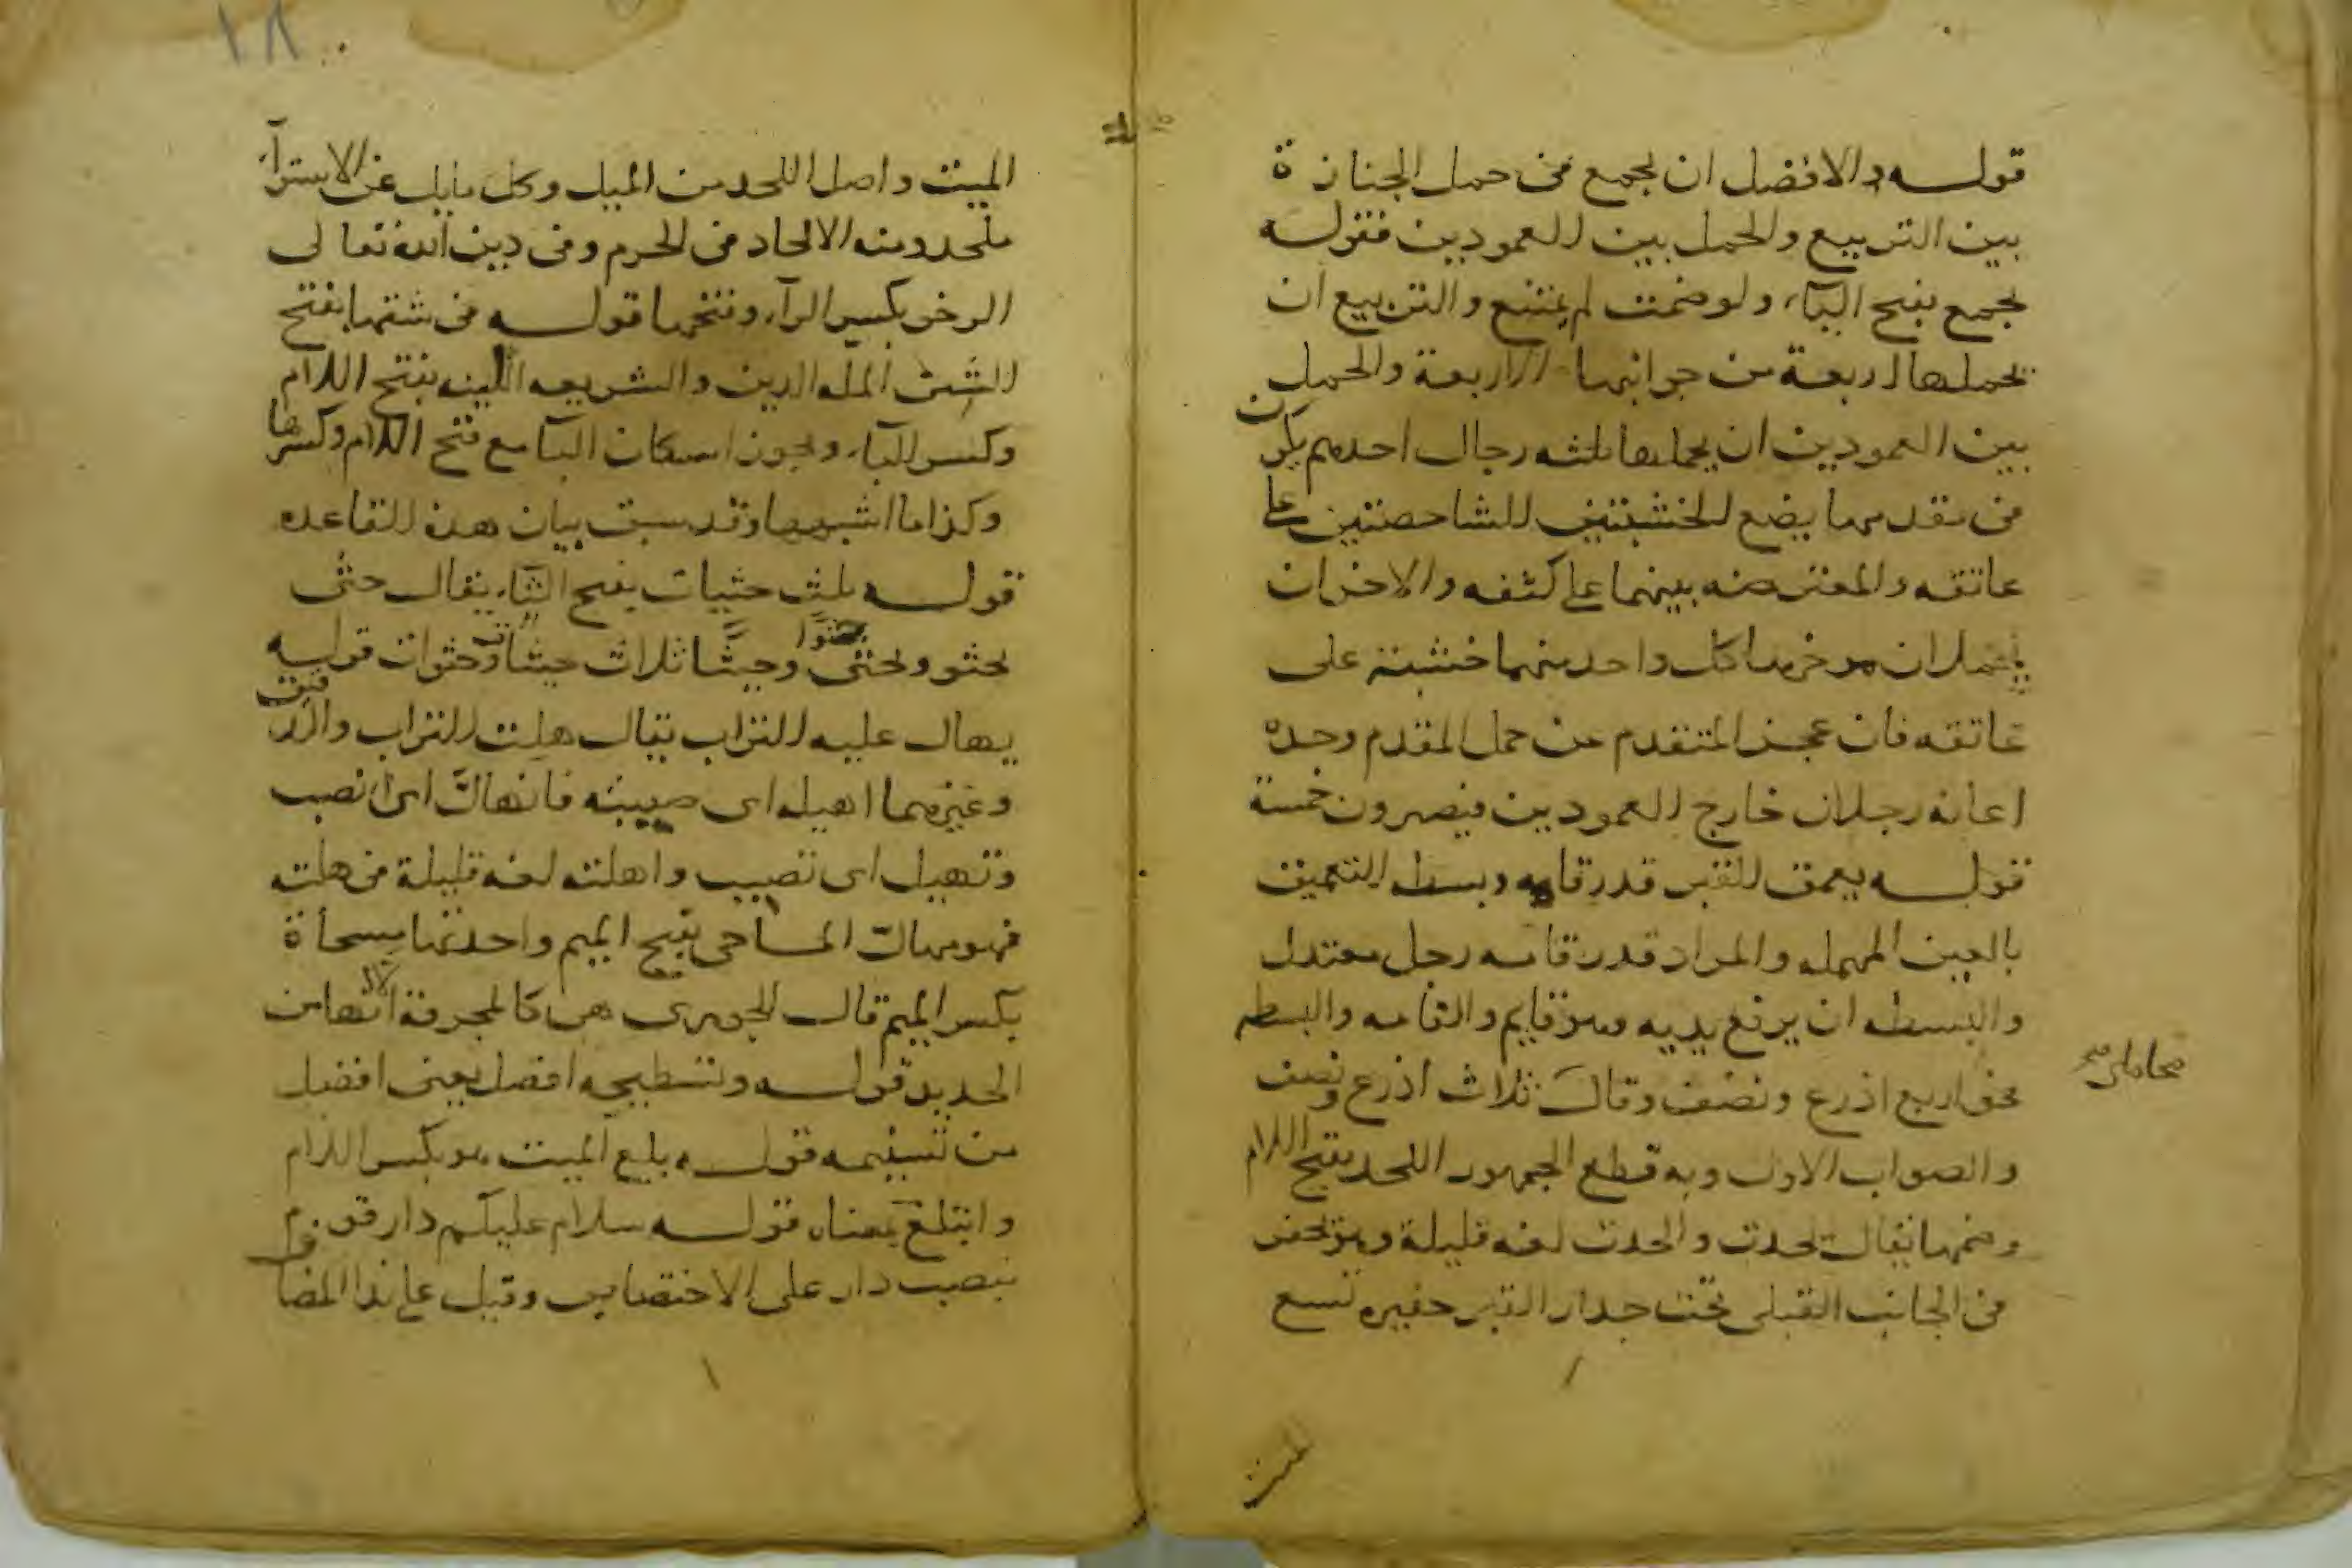 قولـه والافضل ان يجمع في حمل الجنازة
بين التربيع والحمل بين العمودين فقوله
يجمع بفتح اليآء ولو ضمت لم يمتنع والتربيع ان
يحملها اربعة من جوانبها الاربعة والحمل
بين العمودين ان يحملها ثلثه رجال احدهم يكون
في مقدمها يضع الخشبتين الشاخصتين على
عاتقه والمعترضه بينهما على كتفه والاخران
يحملان موخرها كل واحد منهما خشبته على
عاتقه فان عجز المتقدم عن حمل المقدم وحده
اعانه رجلان خارج العمودين فيصيرون خمسة
قولـه يعمق القبر قدر قامه وبسطه التعميق
بالعين المهمله والمراد قدر قامه رجل معتدل
والبسطه ان يرفع يديه وهو قايم والقامه والبسطه
نحو اربع اذرع ونصف وقال ثلاث اذرع ونصف
محاملى صح
والصواب الاول وبه قطع الجمهور اللحد بفتح اللام
وضمها يقال لحدت والحدت لغه قليلة وهو حفر
في الجانب القبلى تحت جدار القبر حفيره تسع
الميت
١٨
الميت واصل اللحد من الميل وكل مايل عن الاستوآء
ملحد ومنه الالحاد في الحرم وفي دين الله تعالى
الرخو بكسر الرآء وفتحها قولـه في شقها بفتح
الشين المله الدين والشريعه اللبنه بفتح اللام
وكسر البآء ويجوز اسكان البآ مع فتح اللام وكسرها
وكذا ما اشبهها وقد سبق بيان هذه القاعده
قولـه ثلث حثيات بفتح الثآء يقال حثى
يحثو ويحثى حثوا وحثيا ثلاث حثيات وحثوات قوله
يهال عليه التراب يقال هلت التراب والدقيق
وغيرهما اهيله اى صببته فانهال اى انصب
وتهيل اى تصبب واهلته لغه قليلة في هلته
فهو مهال المساحى بفتح الميم واحدتها مسحاة
بكسر الميم قال الجوهرى هى كالمجرفة الا انها من
الحديد قولـه وتسطيحه افضل يعنى افضل
من تسنيمه قولـه بلع الميت هو بكسر اللام
وابتلع بمعناه قولـه سلام عليكم دار قوم
بنصب دار على الاختصاص وقيل على ندا المضاف